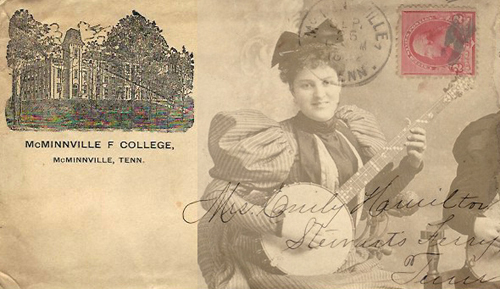 McMINNVILLE F COLLEGE,
McMINNVILLE, TENN.
VILLE,
TENN.
Mrs. Emily Hamilton
Stewarts Ferry
Tenn